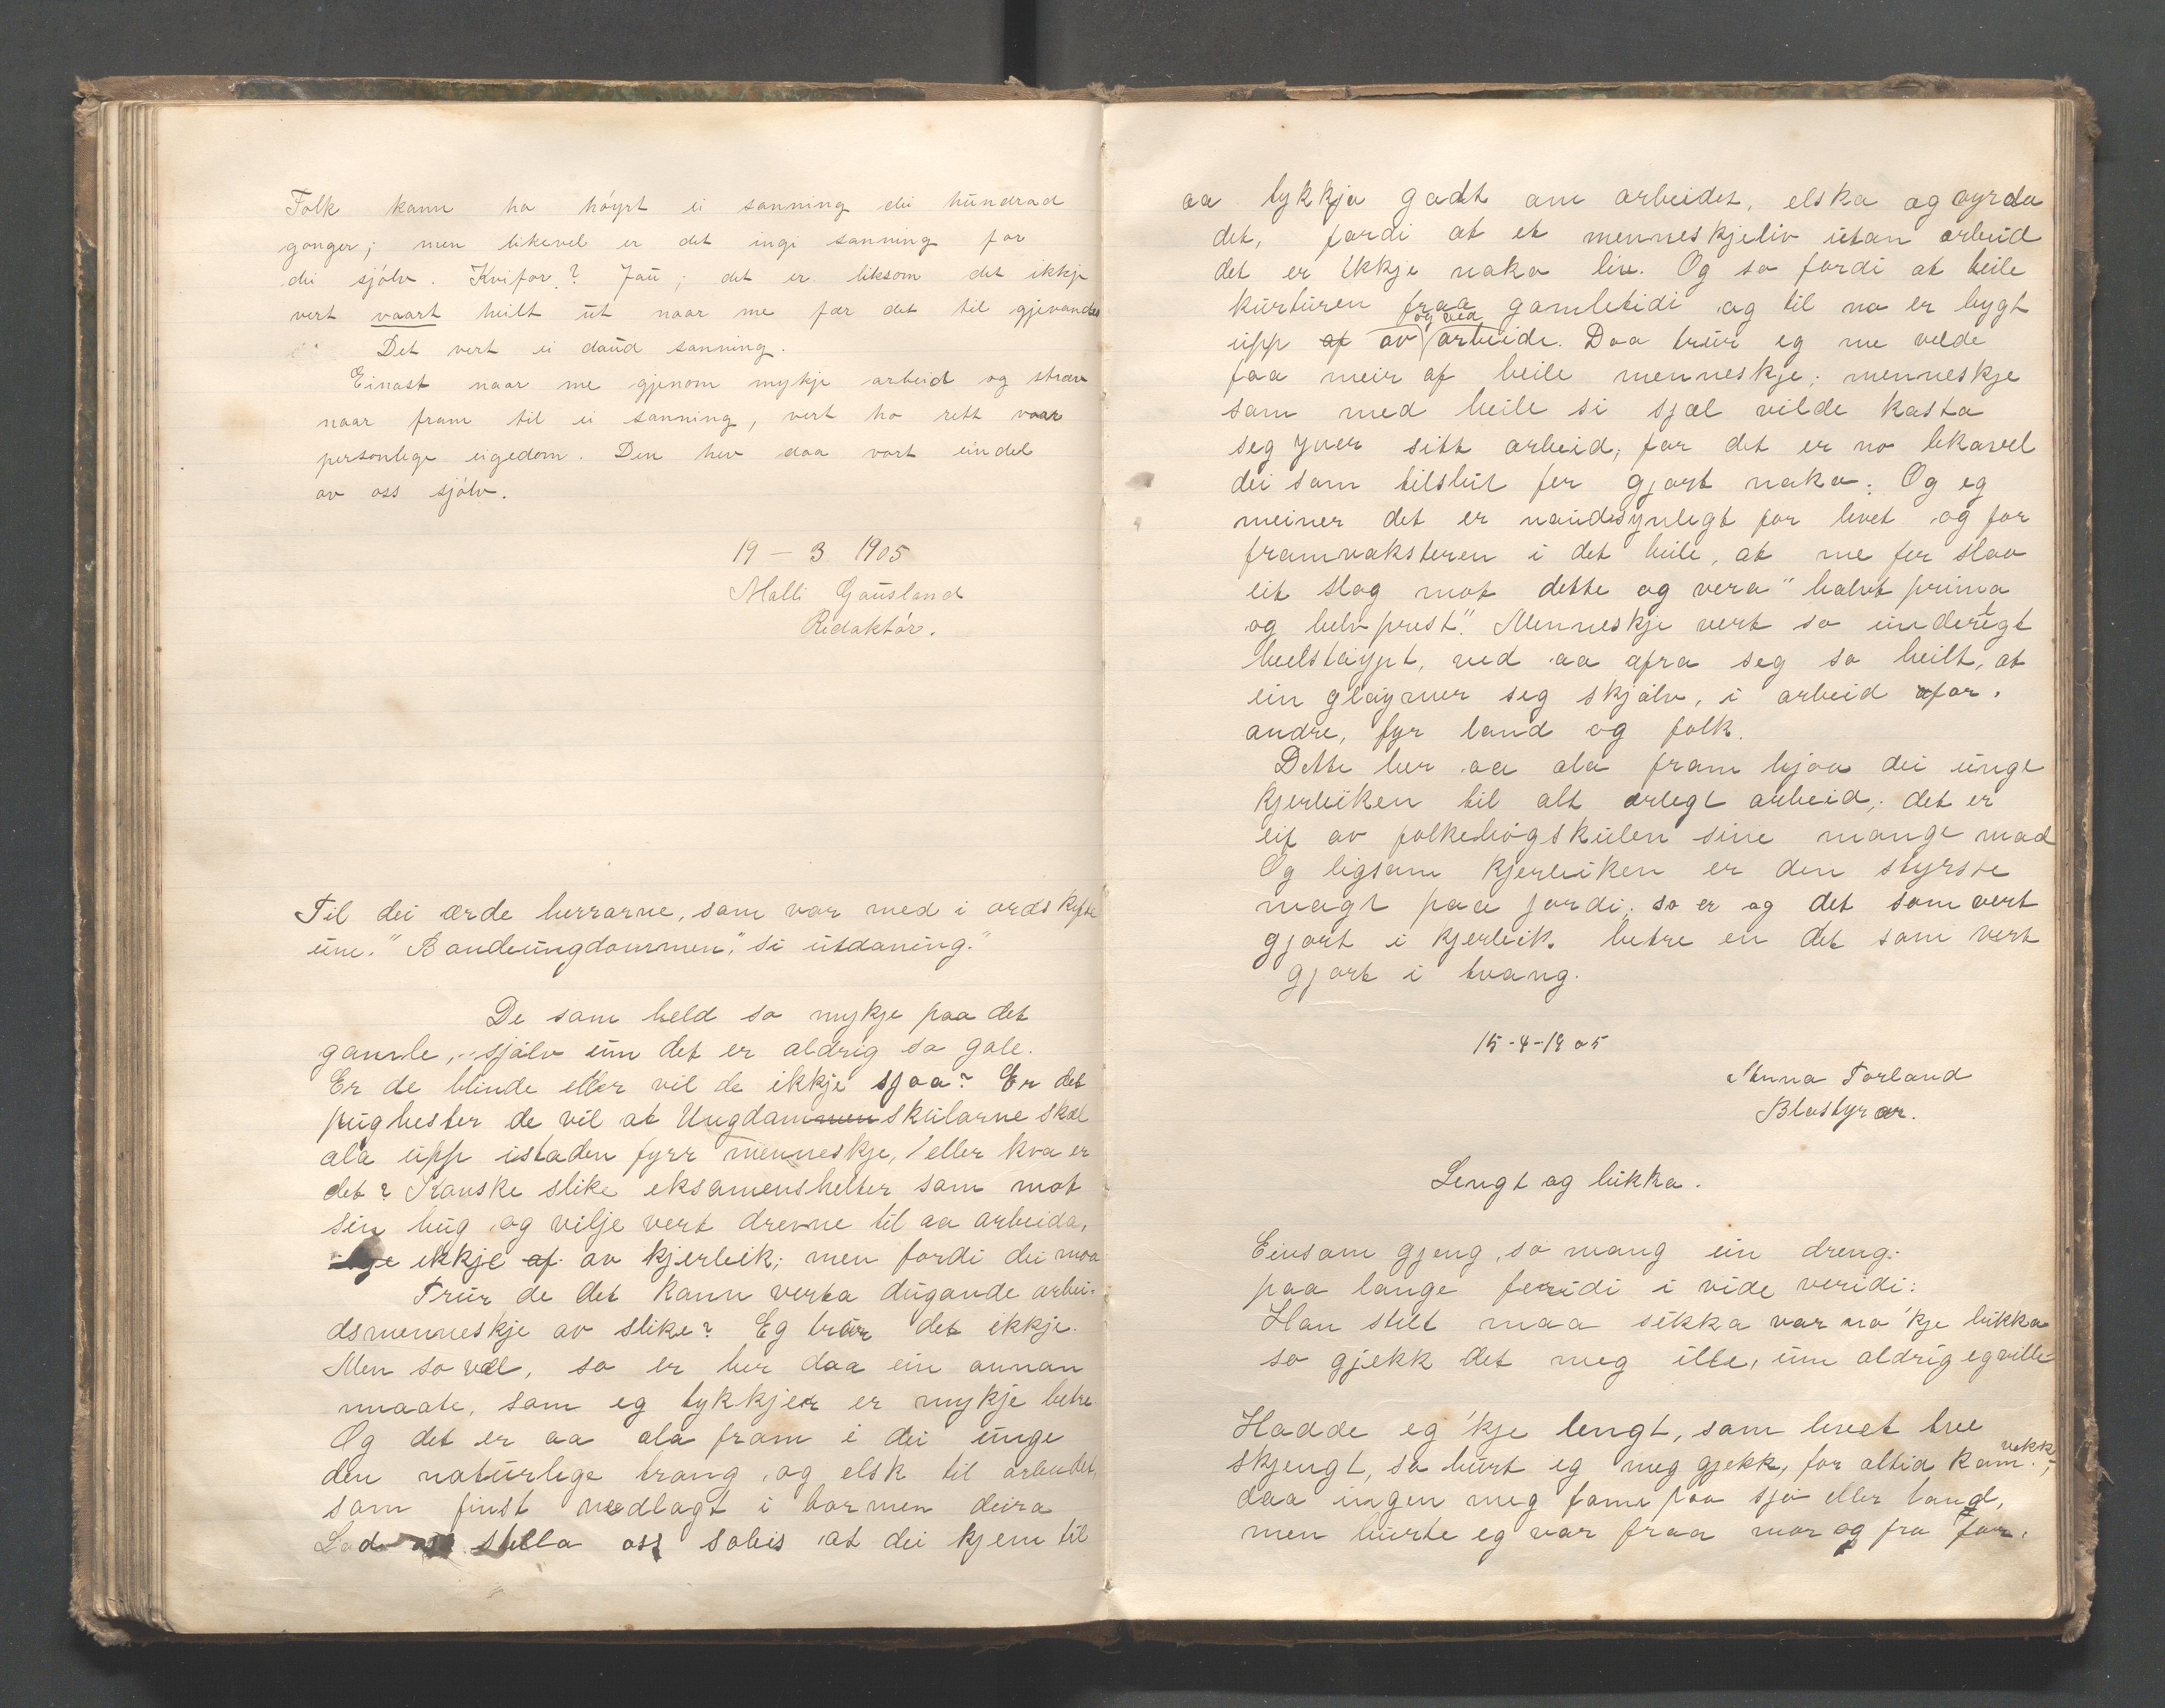 Folk kann ha høyrt ei sanning ein hundrad
gonger; men likevel er det ingi sanning for
dei sjølv. Kvifor? Jau; det er liksom det ikkje
vert vaart heilt ut naar me fær det til gjevandes
Det vert ei daud sanning.
Einast naar me gjenom mykje arbeid og stræv
naar fram til ei sanning, vert ho rett vaar
personlege eigedom. Den hev daa vort ein del
av oss sjølv.
19 – 3 1905
Malli Gausland
Redaktør.
Til dei ærde herrarne, som var med i ordskyfte
um. "Bondeungdommen," si utdaning."
De som held so mykje paa det
gamle, sjølv um det er aldrig so gale.
Er de blinde eller vil de ikkje sjaa? Er det
pughester de vil at Ungdommenskularne skal
ala upp istaden fyrr menneskje, eller kva er
det? Kanske slike eksamenshelter som mot
sin hug og vilje vert drevne til aa arbeida,
ikkje af av kjerleik; men fordi dei maa
Trur de det kann verta dugande arbei-
dsmenneskje av slike? Eg trur det ikkje.
Men so vel, so er her daa ein annan
maate, som eg tykkjer er mykje betre
Og det er aa ala fram i dei unge
den naturlege trang og elsk til arbeidet,
som finst nedlagt i barmen deira
Lad oss stella oss soleis at dei kjem til
aa tykkja godt om arbeidet, elska og ayrda
det, fordi at et menneskjeliv utan arbeid
det er ikkje noko liv. Og so fordi at heile
kurturen fraa gamletidi og til no er bygt
upp af av og ved arbeide. Daa trur eg me velde
faa meir af heile menneskje; menneskje
som med heile si sjæl vilde kasta
seg yver sitt arbeid, for det er no likavel
dei som tilslut fer gjort noko. Og eg
meiner det er naudsynlegt for livet og for
framvaksteren i det heile, at me fer slaa
eit slag mot dette og vera "halvt prima
og helv prest." Menneskje vert so underlegt
heelstøypt, ved aa ofra seg so heilt, at
ein gløymer seg skjølv, i arbeid for
andre, fyr land og folk.
Dette her aa ala fram hjaa dei unge
kjerleiken til alt ærlegt arbeid, det er
eit av folkehøgskulen sine mange maal
Og ligsom kjerleiken er den styrste
magt paa jordi; so er og det som vert
gjort i kjerleik betre en det som vert
gjort i tvang.
15-4-1905
Anna Torland
Bladstyrar.
Lengt og lukka.
Einsam gjeng, so mang ein dreng.
paa lange ferdi i vide veridi:
Han stilt maa sukka var no 'kje lukka
so gjekk det meg ille, um aldrig eg ville
Hadde eg 'kje lengt, som livet hev
skjengt, so burt eg meg gjekk, for altid kom vekk;
daa ingen meg fann paa sjø eller land,
men burte eg var fraa mor og fra far.